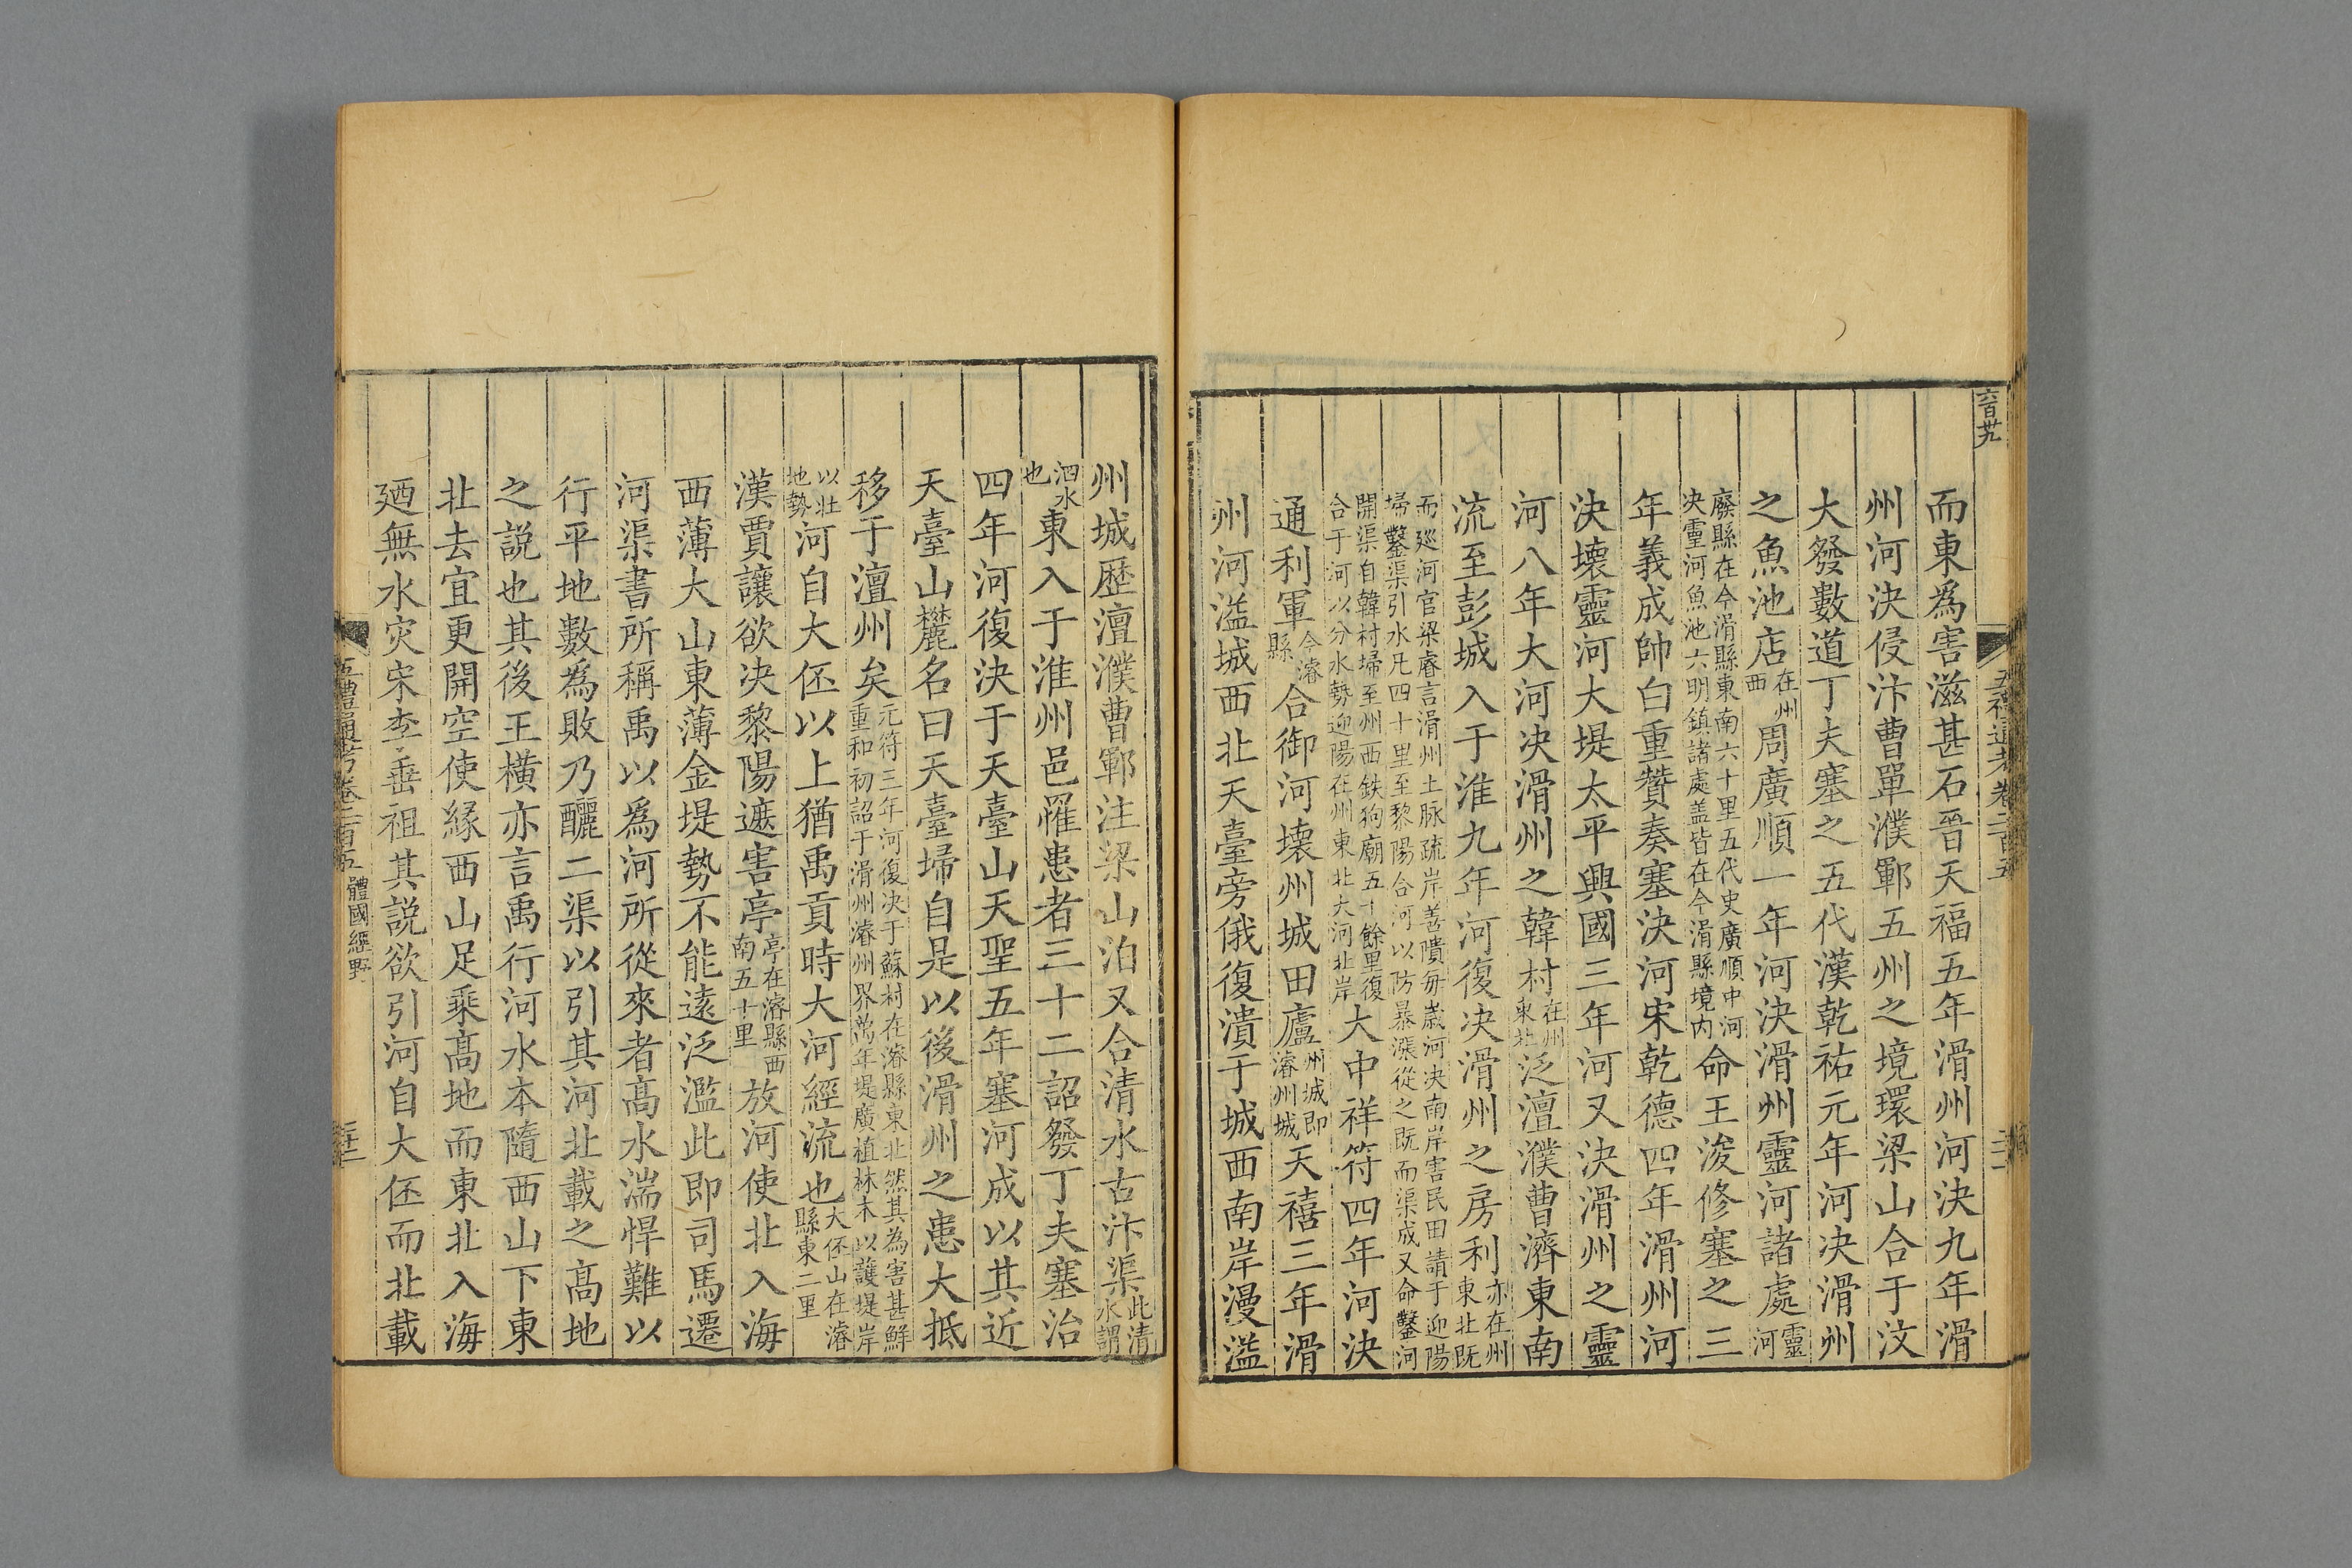 六百廿九
五禮通考卷二百五
而東爲害滋甚石晉天福五年滑州河決九年滑
州河決侵汴曹單濮鄆五州之境環梁山合于汶
大發數道丁夫塞之五代漢乾祐元年河決滑州
之魚池店在州西周廣順一年河決滑州靈河諸處靈河
廢縣在今滑縣東南六十里五代史廣順中河決靈河魚池六明鎮諸處盖皆在今滑縣境內命王浚修塞之三
年義成帥白重贊奏塞決河宋乾德四年滑州河
決壞靈河大堤太平興國三年河又決滑州之靈
河八年大河決滑州之韓村在州東北泛澶濮曹濟東南
流至彭城入于淮九年河復決滑州之房利亦在州東北既
而巡河官梁睿言滑州土脉疏岸善隤每歲河決南岸害民田請于迎陽埽鑿渠引水凡四十里至黎陽合河以防暴漲從之既而渠成又命鑿河
開渠自韓村埽至州西鉄狗廟五十餘里復合于河以分水勢迎陽在州東北大河北岸大中祥符四年河決
通利軍今濬縣合御河壞州城田廬州城即濬州城天禧三年滑
州河溢城西北天臺旁俄復潰于城西南岸漫溢
州城歷澶濮曹鄆注梁山泊又合清水古汴渠此清水謂
泗水也東入于淮州邑罹患者三十二詔發丁夫塞治
四年河復決于天臺山天聖五年塞河成以其近
天臺山麓名曰天臺埽自是以後滑州之患大抵
移于澶州矣元符三年河復決于蘇村在濬縣東北然其為害甚鮮重和初詔于滑州濬州界萬年堤廣植林木以護堤岸
以壯地勢河自大伾以上猶禹貢時大河經流也大伾山在濬縣東二里
漢賈讓欲決黎陽遮害亭亭在濬縣西南五十里放河使北入海
西薄大山東薄金堤勢不能遠泛濫此即司馬遷
河渠書所稱禹以爲河所從來者高水湍悍難以
行平地數爲敗乃釃二渠以引其河北載之高地
之說也其後王橫亦言禹行河水本隨西山下東
北去宜更開空使緣西山足乘高地而東北入海
廼無水灾宋李垂祖其說欲引河自大伾而北載
五禮通考卷二百五 體國經野